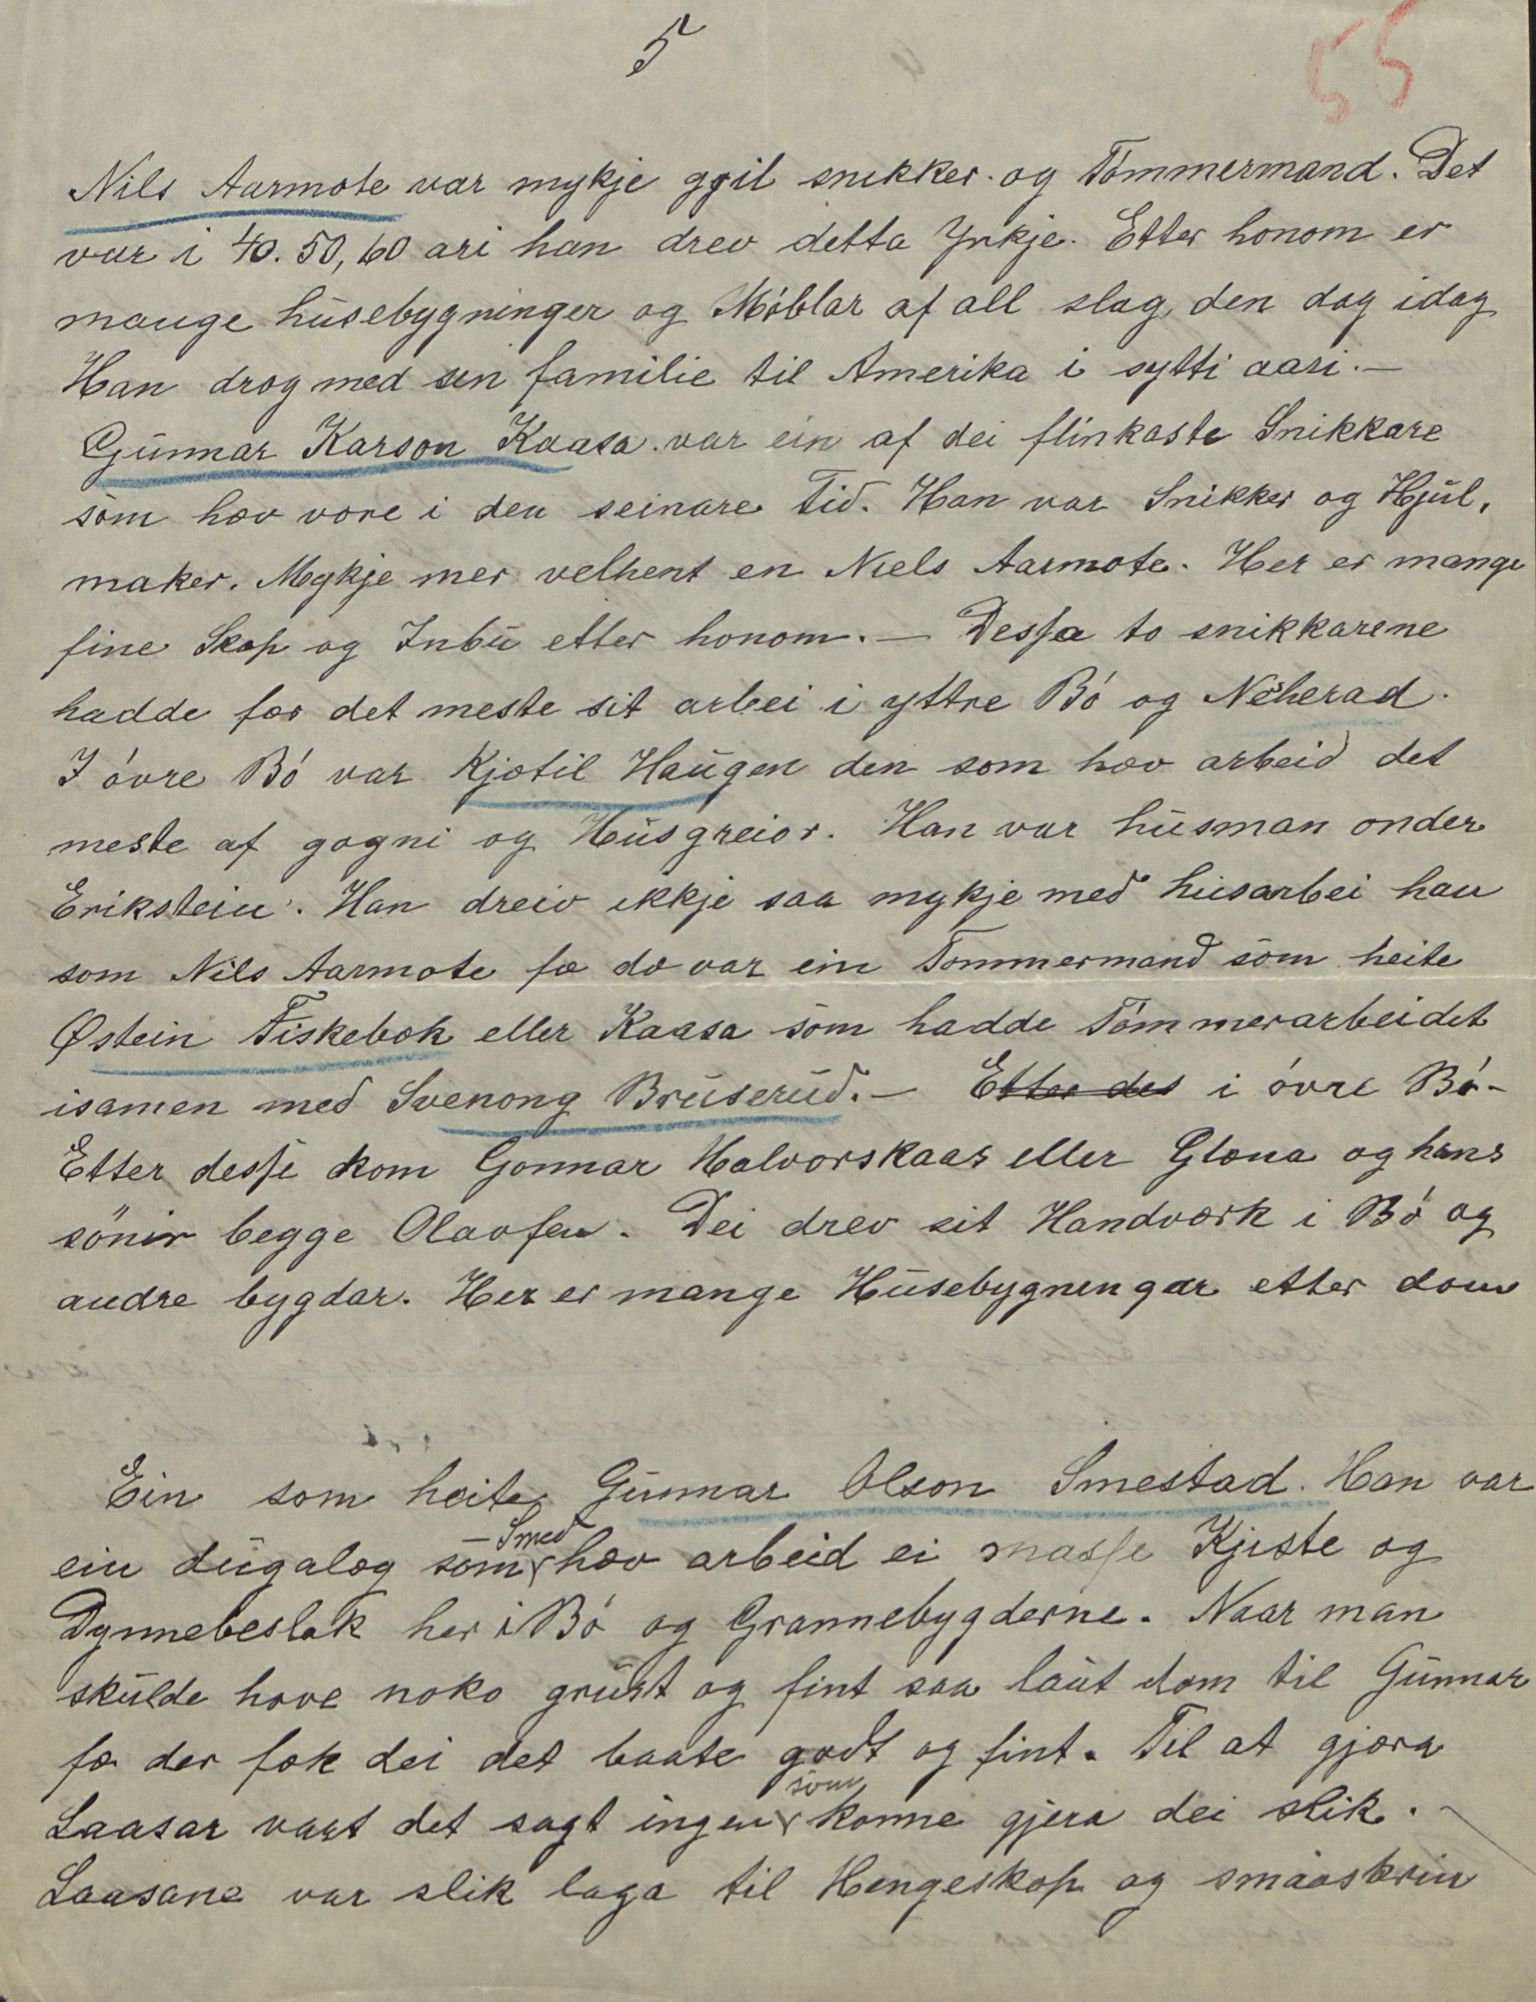 5
55
Nils Aarmote var mykje ggil snekker og Tómmermand. Det
var i 40. 50, 60 ari han drev detta Yrkje. Etter honom er
mange húsebygninger og Móblar af all slag, den dag idag
Han drog med sin familie til Amerika i sytti aari.—
Gunnar Karson Kaasa. var ein af dei flinkaste Snikkare
som hæv vore i den seinare Tid. Han var Snikker og Hjul,
maker. Mykje mer velhent en Niels Aarmote. Her er mange
fine Skap og Inbu etter honom.— Dessa to snikkarene
hadde fær det meste sit arbei i yttre Bó og Neherad.
I óvre Bó var Kjætil Haugen den som hæv arbeid det
meste af gogni og Husgreior. Han var húsman onder
Erikstein. Han dreiv ikkje saa mykje med húsarbei han
som Nils Aarmote fæ dæ var ein Tommermand som heite
Østein Fiskebæk eller Kaasa som hadde Tómmerarbeidet
isamen med Svenong Bruserud.— Etter des i óvre Bó-
Etter desse kom Gonnar Halvorskaas eller Glæna og hans
sönir begge Olavsen. Dei drev sit Handværk i Bó og
andre bygdar. Her er mange Húsebygnengar etter dom
Ein som heite Gunnar Olson Smestad. Han var
ein dugalæg som – Smed hæv arbeid ei masse Kjiste og
Dynnebeslak her i Bó og Grannebygderne. Naar man
skulde have noko grust og fint saa laut dom til Gunnar
fæ der fæk dei det baate godt og fint. Til at gjæra
Laasar vart det sagt ingen som konne gjera dei slik.
Laasane var slik laga til Hengeskap og smaaskrin